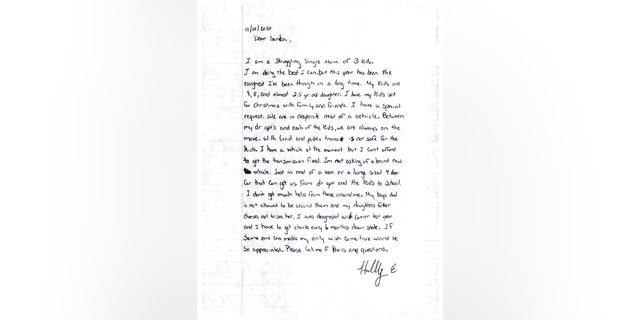 11/10/2020
Dear Santa,
I am a struggling single mom of 3 kids.
I am doing the best I can but this year has been the
roughest I've been through in a long time. My kids are
9, 8, and almost 2.5 yr old daughter. I have my kids set
for Christmas with family and friends. I have a special
request. We are in desperate need of a vehicle. Between
my dr apt's and each of the kids, we are always on the
move. With Covid and public transit is not safe for the
kids. I have a vehicle at the moment but I can't afford
to get the transmission fixed. I'm not asking of a brand new
vehicle. Just in need of a van or a large sized 4 door
car that can get us from dr apt and the kids to school.
I don't get much help from those around me. My boys dad
is not allowed to be around them and my daughters father
chooses not to see her. I was diagnosed with Cancer last year
and I have to get checks every 6 months down state. If
someone can make my only wish come true would be
so appreciated. Please call me if theirs any questions.
Holly E